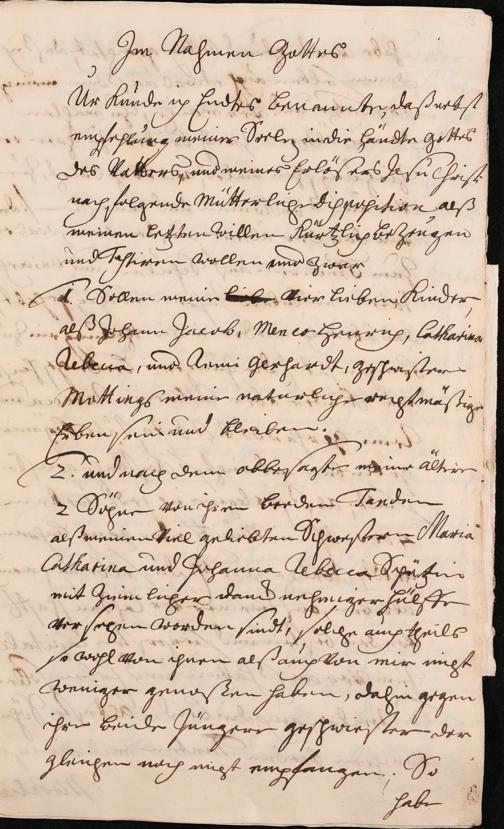 Im Nahmen Gottes
Ur Kunde ich Endtes benannte, daß nebst
empfehlung meiner Seelen in die Händte Gottes
des Vatters, und meines Erlösers Jesu Christ
nachfolgende Mütterliche disposition alß
meinen letzten willen kürtzlich bezeugen
und wollen und zwar
1. Sollen meine vier lieben Kinder,
alß Johann Jacob, Menco Henrich, Catharina
Rebecca, und Remi Gerhardt, geschwistere
Mettings meine naturliche rechtmäßige
Erben sein und bleiben.
2. und nach dem obbesagte meine ältere
2 Söhne von ihren beeden Tanden
alß meinen viel geliebten Schwestern Maria
Catharina und Johanna Rebecca
mit zimlicher hülffe
versehen worden sindt, solche auch theils
so wohl von ihnen alß auch von mir nicht
weniger genoßen haben, dahin gegen
ihre beide Jüngere geschwister der
gleichen noch nicht empfangen; So
habe